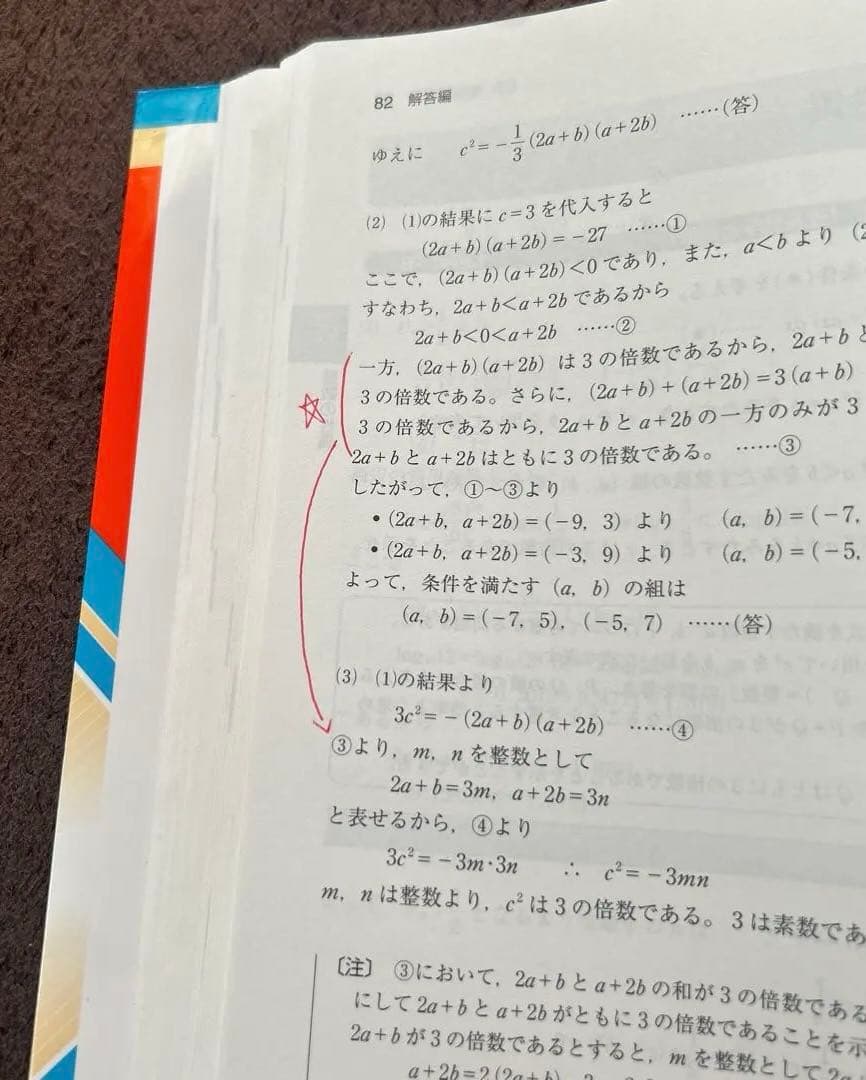 82 解答編
ゆえに c²=-1/3(2a+b)(a+2b) ……(答)
(2) (1)の結果にc=3を代入すると
(2a+b)(a+2b)=-27 ……①
ここで,(2a+b)(a+2b)<0であり,また,a<bより (2
すなわち,2a+b<a+2bであるから
2a+b<0<a+2b ……②
一方,(2a+b)(a+2b)は3の倍数であるから,2a+bと
3の倍数である。さらに,(2a+b)+(a+2b)=3(a+b)
3の倍数であるから,2a+bとa+2bの一方のみが3
2a+bとa+2bはともに3の倍数である。 ……③
したがって,①~③より
•(2a+b, a+2b)=(-9, 3)より (a, b)=(-7,
•(2a+b, a+2b)=(-3, 9)より (a, b)=(-5,
よって,条件を満たす(a, b)の組は
(a, b)=(-7, 5), (-5, 7) ……(答)
(3) (1)の結果より
3c²=-(2a+b)(a+2b) ……④
③より,m, nを整数として
2a+b=3m, a+2b=3n
と表せるから,④より
3c²=-3m·3n ∴ c²=-3mn
m, nは整数より,c²は3の倍数である。3は素数であ
〔注〕 ③において,2a+bとa+2bの和が3の倍数である
にして2a+bとa+2bがともに3の倍数であることを示
2a+bが3の倍数であるとすると,mを整数として2a
a+2b=2(2a+b)